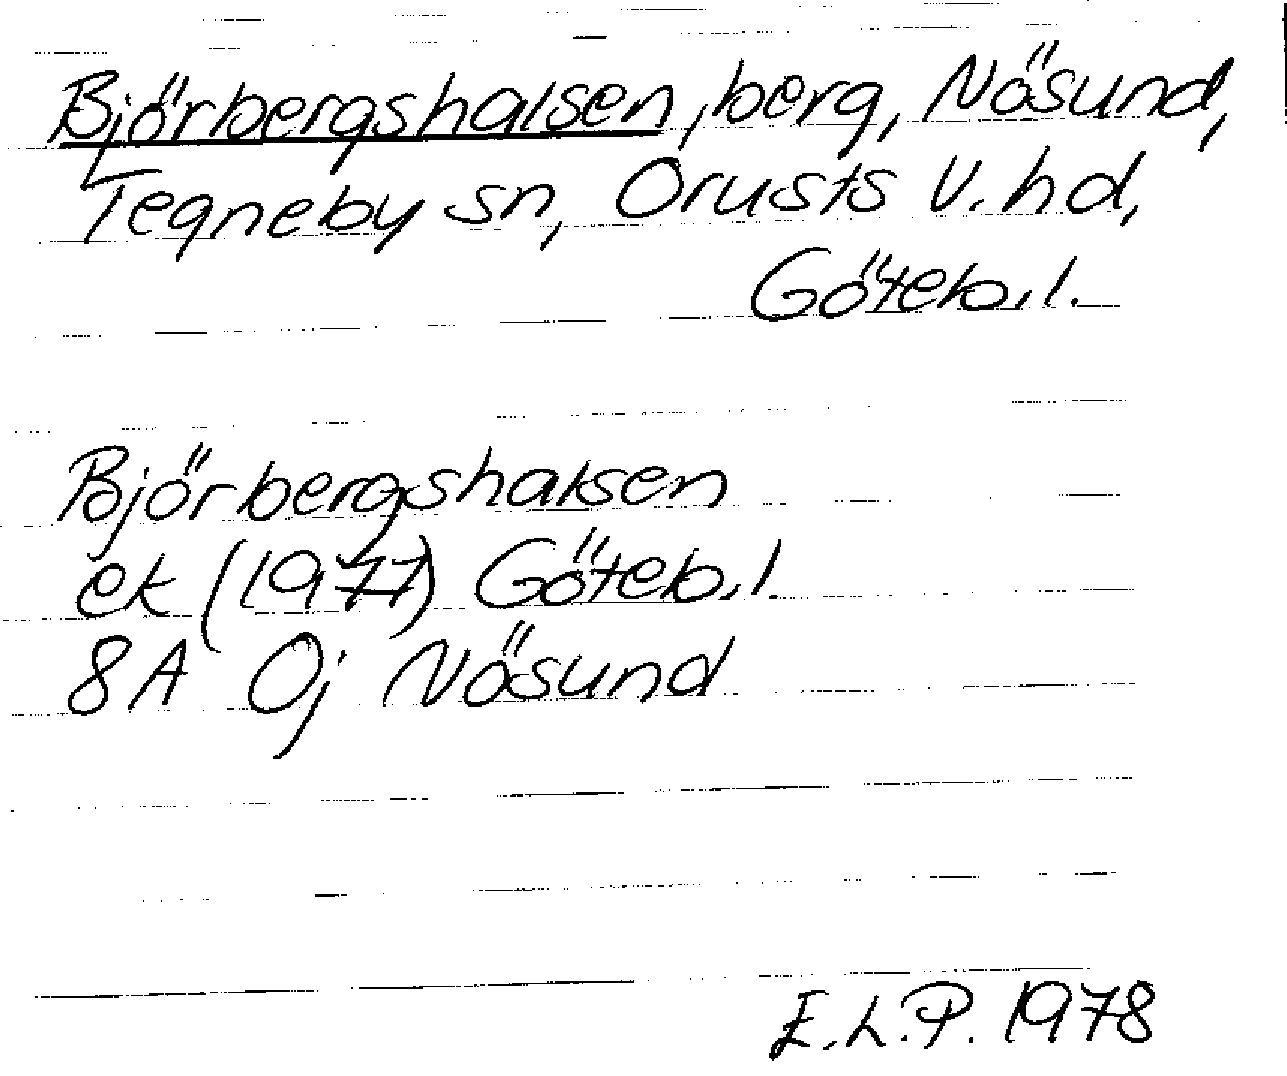 Björbergshalsen, berg, Nösund,
Tegneby sn, Orusts V. hd,
Göteb. l.
Björbergshalsen
ek (1977) Göteb. l.
8A 0j Nösund
E.L.P. 1978